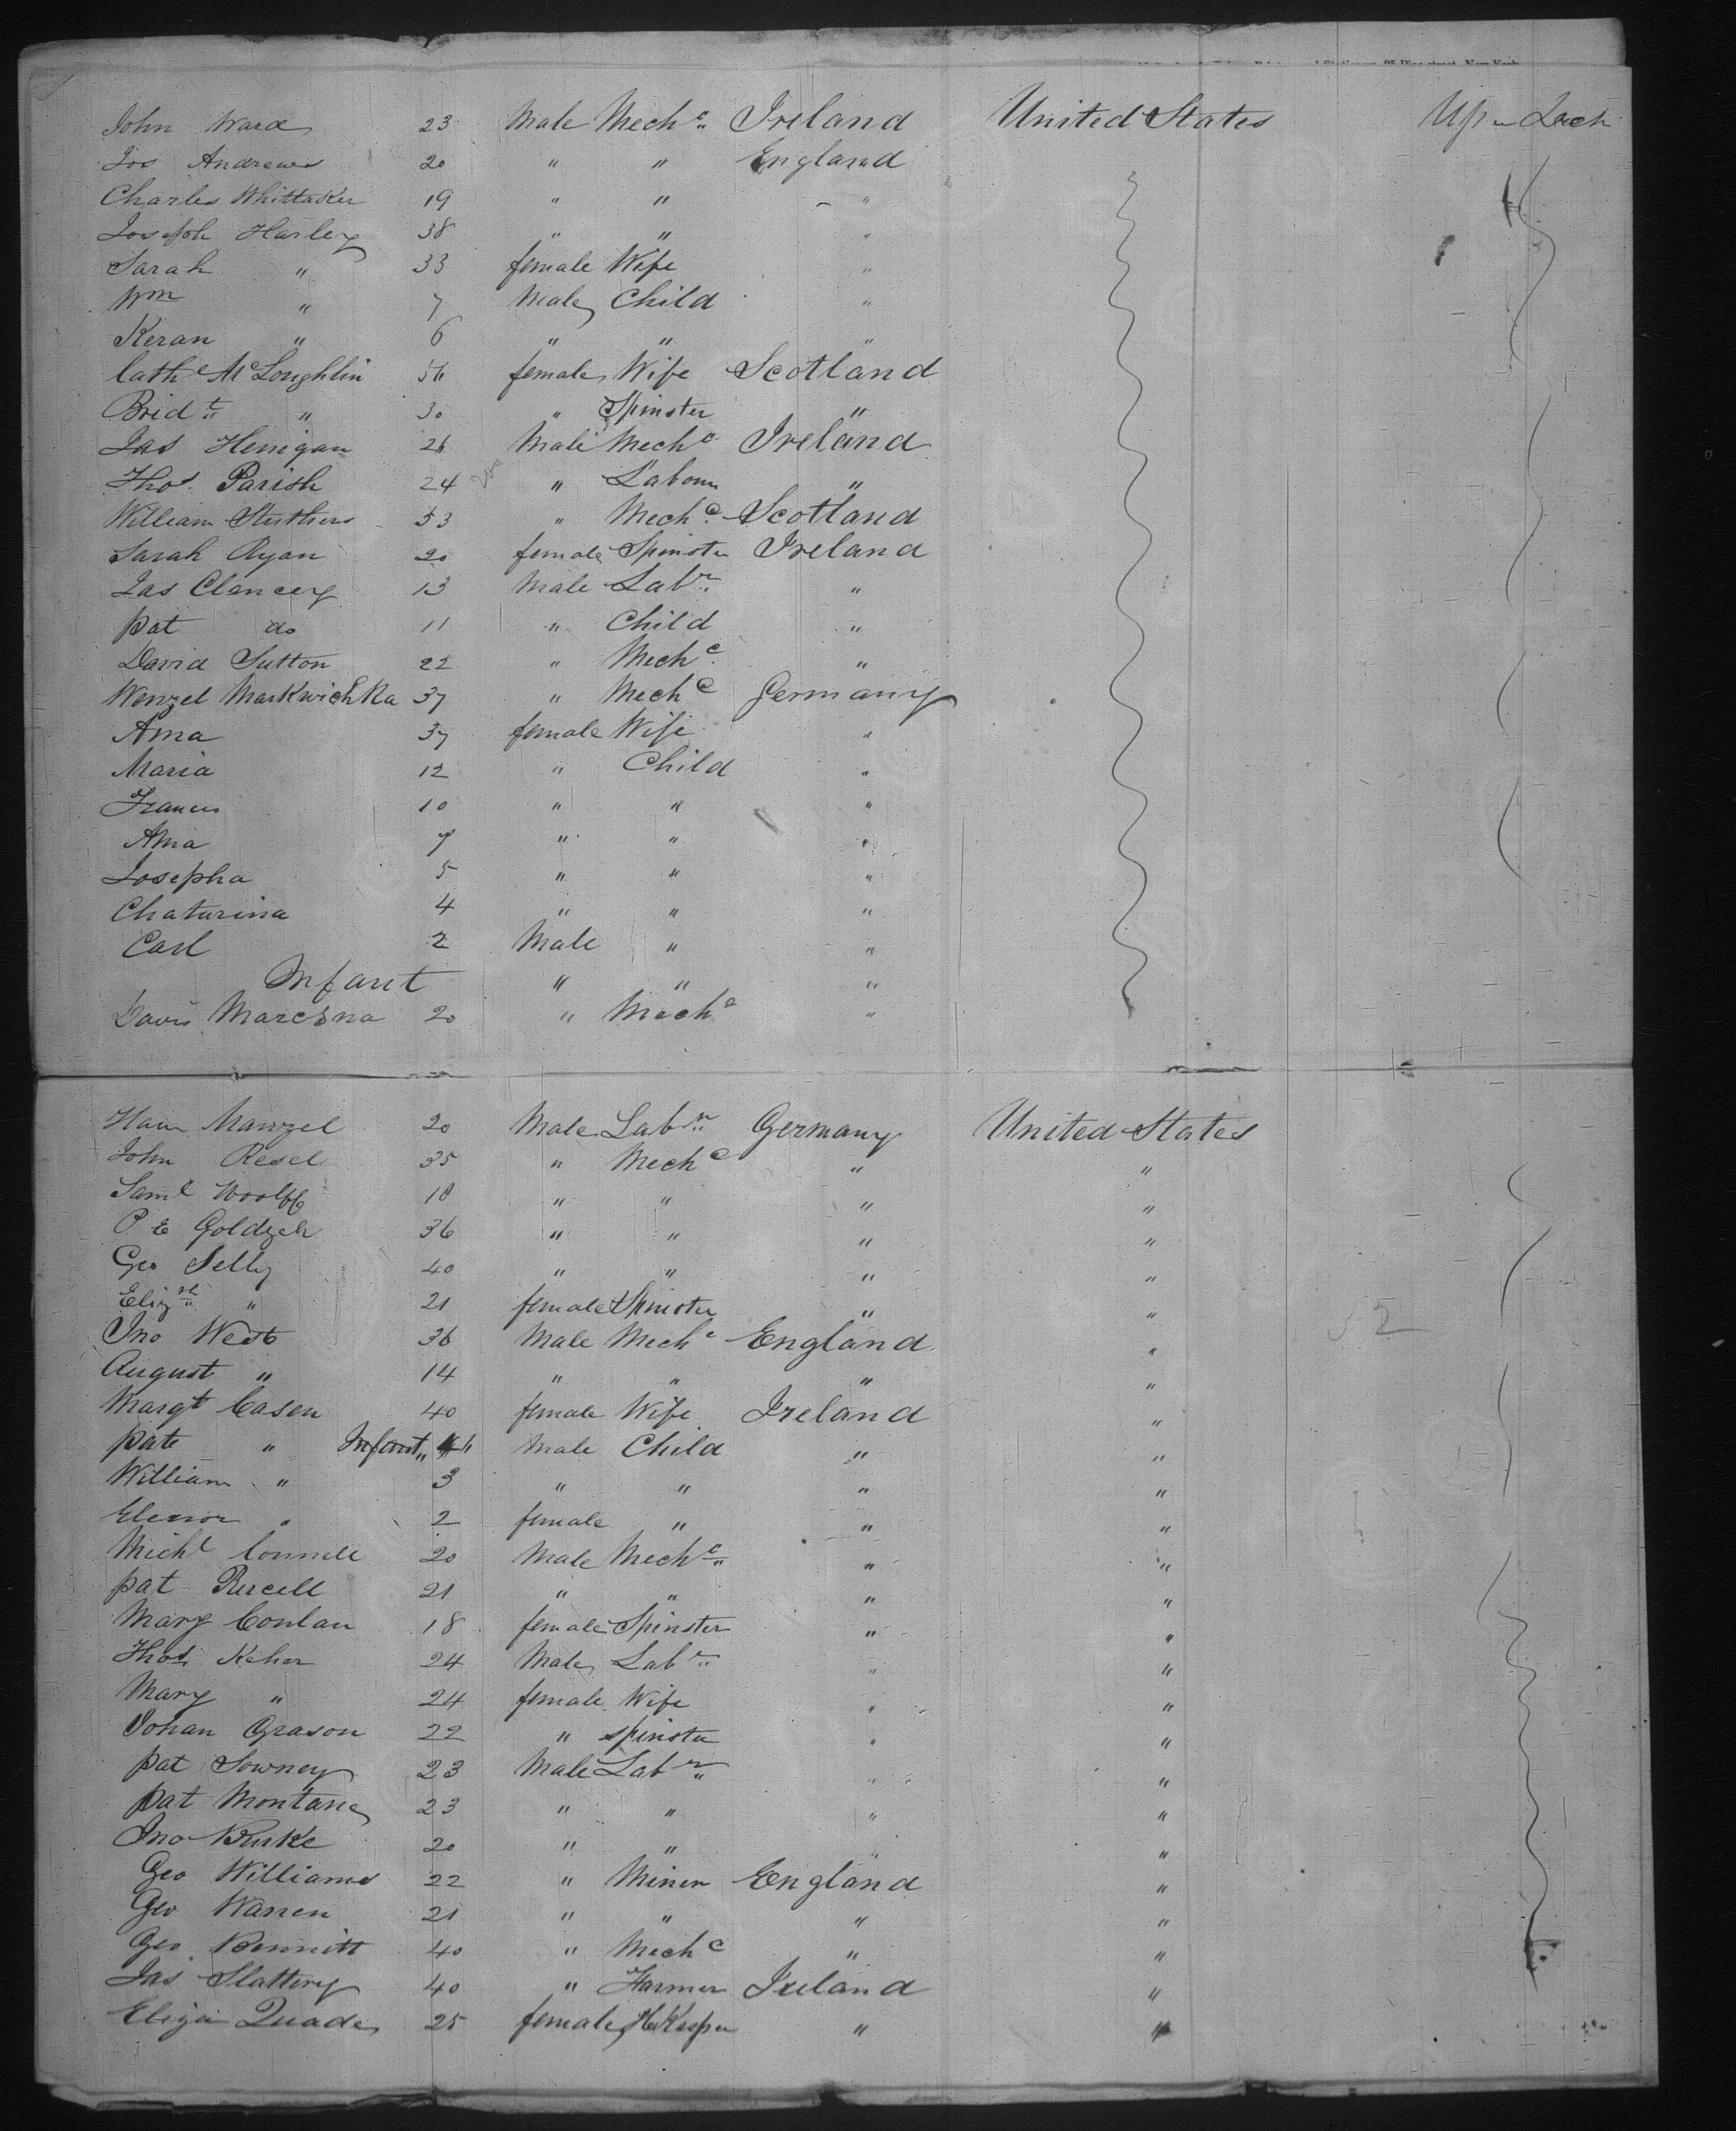 John Ward 23 Male Mechc Ireland United States Up Deck
Jos Andrews 20 " " England
Charles Whittaker 19 " " "
Joseph Harley 38 " " "
Sarah " 33 female Wife "
Wm " 7 Male Child "
Keran " 6 " " "
Cathe McLoughlin 56 female Wife Scotland
Bridt " 30 " Spinster "
Jas Henigan 26 Male Mechc Ireland
Thos Parish 24 " Labour "
William Struthers 53 " Mechc Scotland
Sarah Ryan 20 female Spinster Ireland
Jas Clancey 13 Male Labr "
Pat do 11 " Child "
David Sutton 22 " Mechc "
Wenzel Markwichka 37 " Mechc Germany
Anna 37 female Wife "
Maria 12 " Child "
Frances 10 " " "
Anna 7 " " "
Josepha 5 " " "
Chatarina 4 " " "
Carl 2 Male " "
Infant " " "
Davis 20 " Mechc "
20 Male Labr Germany United States
John Resel 35 " Mechc " "
Saml Woolff 18 " " " "
P E 36 " " " "
Geo Selly 40 " " " "
Elizh " 21 female Spinster " "
Jno West 36 Male Mechc England "
August " 14 " " " "
Margt Casen 40 female Wife Ireland "
Pat " Infant Male Child " "
William " 3 " " " "
Elenor " 2 female " " "
Michl Connell 20 Male Mechc " "
Pat Purcell 21 " " " "
Mary Conlan 18 female Spinster " "
Thos Keher 24 Male Labr " "
Mary " 24 female Wife " "
Johan Grason 22 " Spinster " "
Pat Downey 23 Male Labr " "
Pat Montane 23 " " " "
Jno Burke 20 " " " "
Geo Williams 22 " Miner England "
Geo Warren 21 " " " "
Geo Bennitt 40 " Mechc " "
Jas Slattery 40 " Farmer Ireland "
Eliza Quade 25 female HKeeper " "